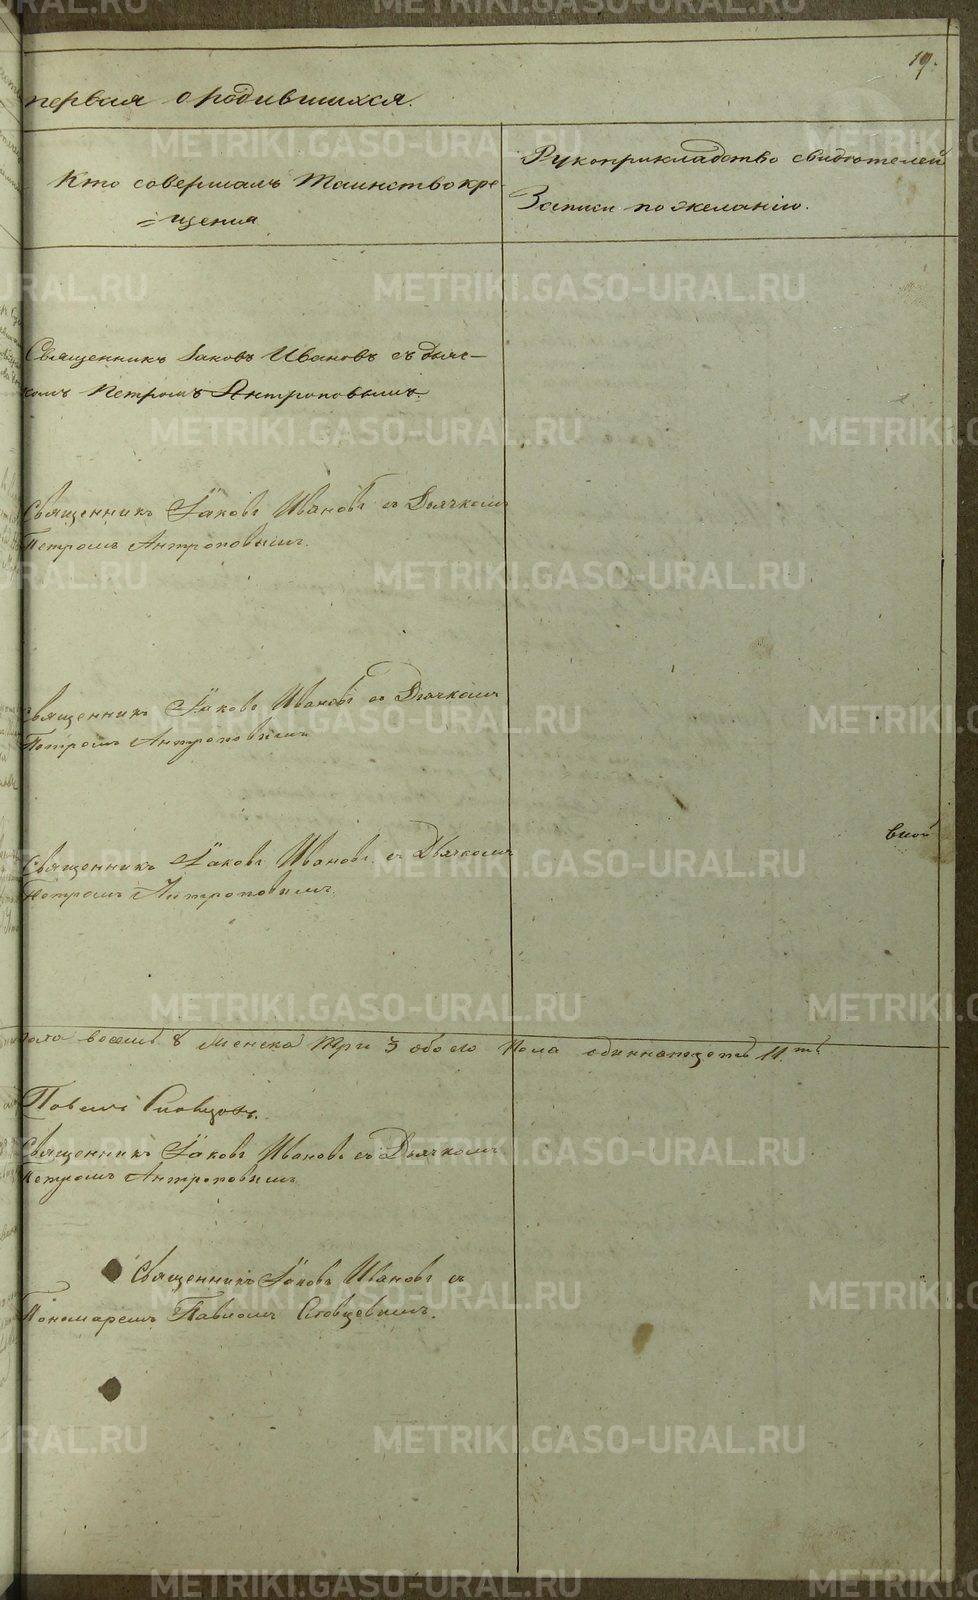 19.
первая о родившихся.
Кто совершалъ Таинство кре-
=щения
Рукоприкладство свидѣтелей
Записи по желанію.
Священникъ Іаковъ Ивановъ съ дьяч-
комъ Петромъ Антроповымъ.
Священникъ Іаковъ Ивановъ съ Дьячкомъ
Петромъ Антроповымъ.
Священникъ Іаковъ Ивановъ съ Дьячкомъ
Петромъ Антроповымъ
Священникъ Іаковъ Ивановъ съ Дьячкомъ
Петромъ Антроповымъ.
вной
пола восемь 8 Женска три 3 обоего пола одиннатцеть 11.ть
Павелъ Словцовъ.
Священникъ Іаковъ Ивановъ съ Дьячкомъ
Петромъ Антроповымъ
Священникъ Іаковъ Ивановъ съ
Пономаремъ Павломъ Словцовымъ.
METRIKI.GASO-URAL.RU